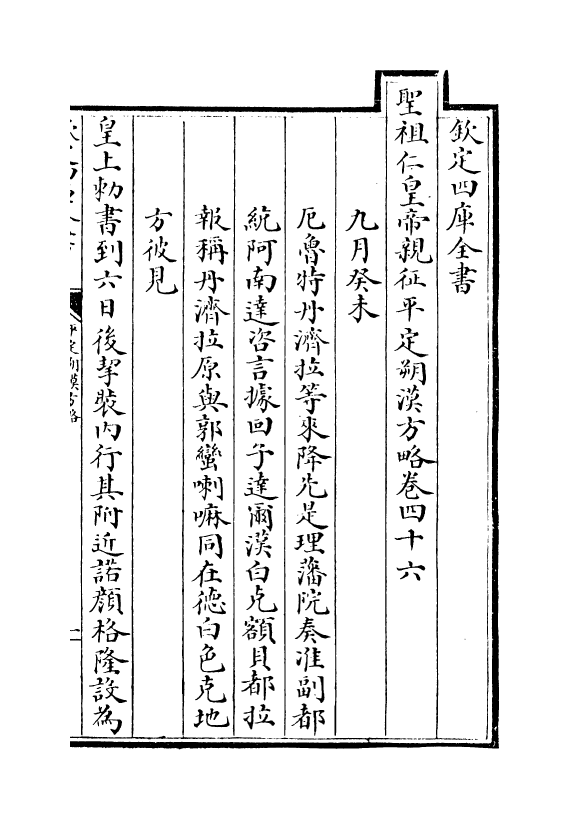 欽定四庫全書
聖祖仁皇帝親征平定朔漠方略卷四十六
九月癸未
厄魯特丹濟拉等來降先是理藩院奏准副都
統阿南達咨言據回子達爾漢白克額貝都拉
報稱丹濟拉原與郭蠻喇嘛同在德白色克地
方彼見
皇上勅書到六日後挈裝內行其附近諾顏格隆設為
平定朔漠方略